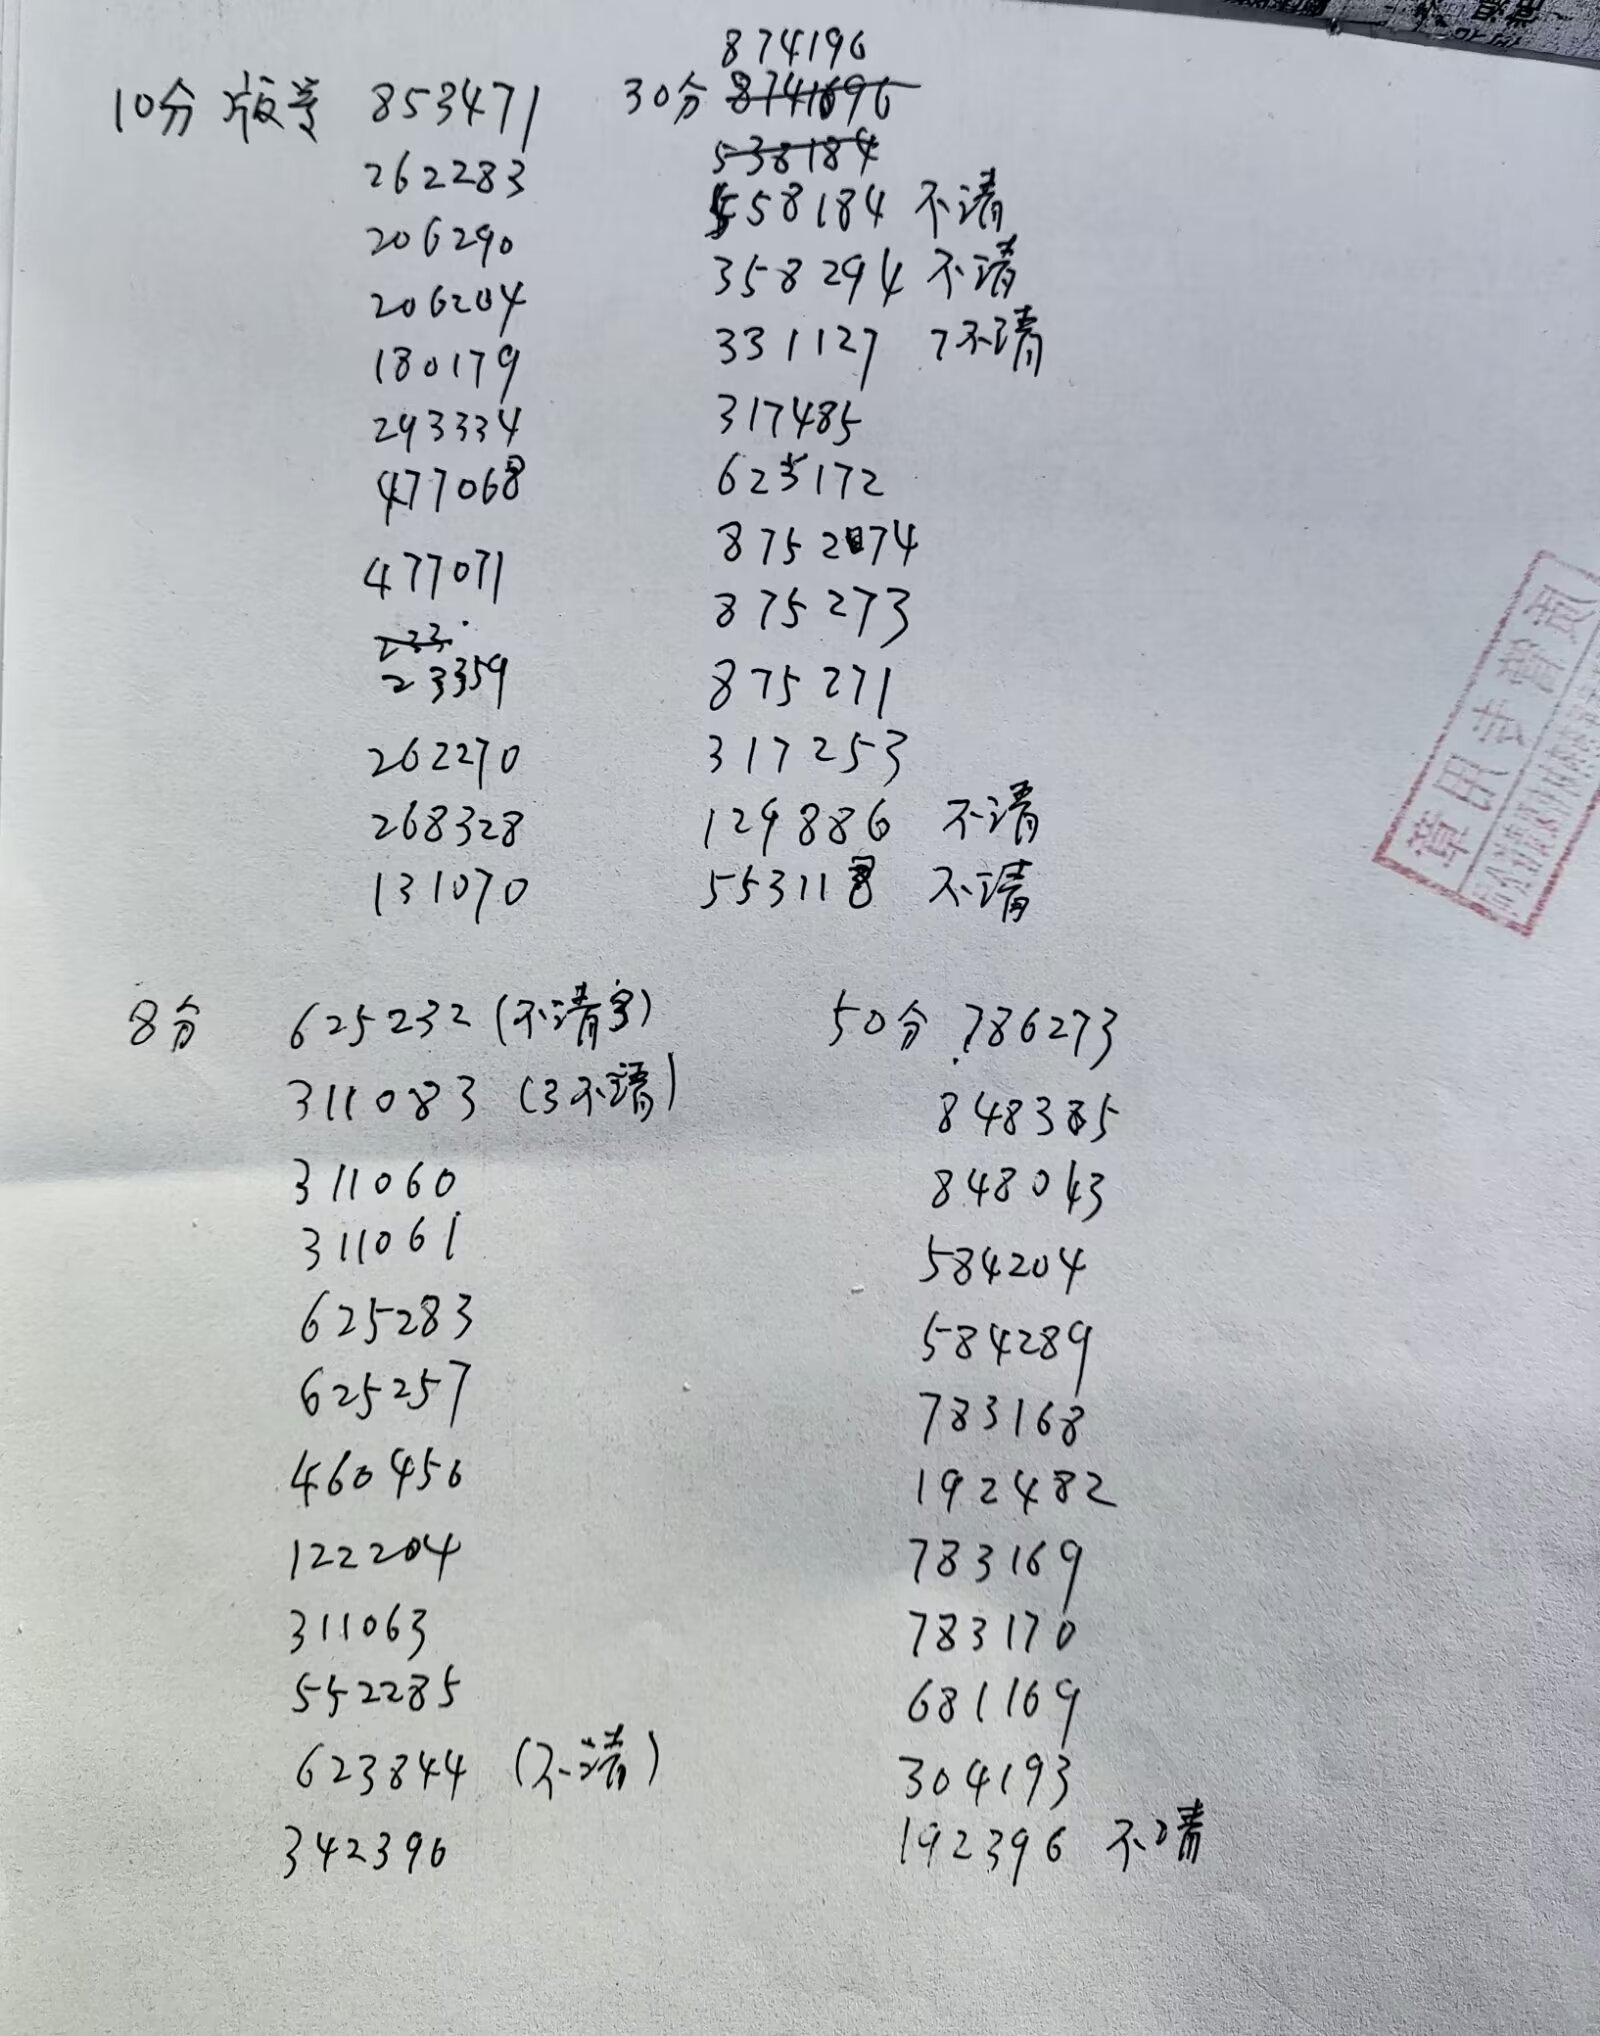 10分 版号 853471
262283
206290
206204
180179
293334
477068
477071
23359
262270
268328
131070
30分 874196
558184 不清
358294 不清
331127 7不清
317485
623172
875274
875273
875271
317253
129886 不清
553118 不清
8分 625232 (不清字)
311083 (3不清)
311060
311061
625283
625257
460456
122204
311063
552285
623844 (不清)
342396
50分 786273
848385
848043
584204
584289
783168
192482
783169
783170
681169
304193
192396 不清